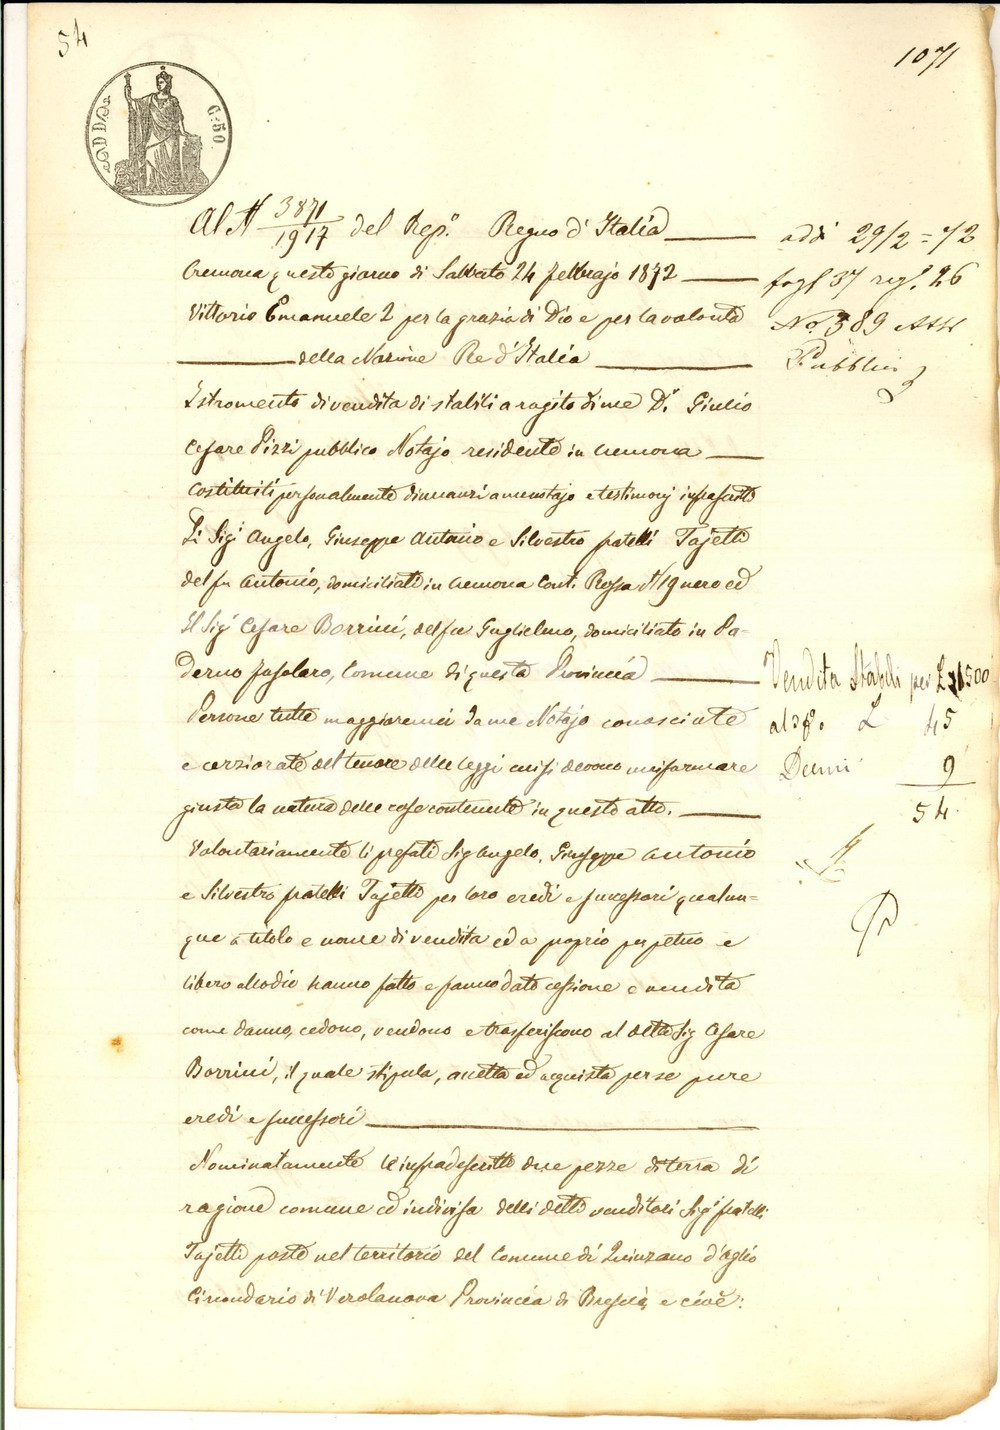 54
1071
C. 50
Al N 3871/1917 del Rep.° Regno d'Italia
Cremona questo giorno di Sabbato 24 Febbrajo 1872
Vittorio Emanuele 2 per la grazia di Dio e per la volontà
della Nazione Re d'Italia
addì 29/2 = 72
fogl 37 reg. 26
No. 389 Atti
Pubblici
Istromento di vendita di stabili a rogito di me D.r Giulio
Cesare Pizzi pubblico Notajo residente in Cremona
Costituiti personalmente dinnanzi a me notajo e testimonj infrascritti
Li Sig.i Angelo, Giuseppe Antonio e Silvestro fratelli Tajetti
del fu Antonio, domiciliati in Cremona Cont. Rossa N 19 nero ed
Il Sig.r Cesare Borrini, del fu Guglielmo, domiciliato in Pa-
derno Fasolaro, Comune di questa Provincia
Persone tutte maggiorenni da me Notajo conosciute
e cerziorate del tenore delle leggi cui si devono uniformare
giusta la natura delle cose contenute in questo atto.
Vendita Stabili per L 1500
al 3 p. L 45
Decimi 9
54
Volontariamente li prefati Sig Angelo, Giuseppe Antonio
e Silvestro fratelli Tajetti per loro eredi e successori qualun-
que a titolo e nome di vendita ed a proprio perpetuo e
libero allodio hanno fatto e fanno dato cessione e vendita
come danno, cedono, vendono e trasferiscono al detto Sig Cesare
Borrini, il quale stipula, accetta ed acquista per se pure
eredi e successori
Nominatamente le infradescritte due pezze di terra di
ragione comune ed indivisa delli detti venditori Sig.i fratelli
Tajetti poste nel territorio del Comune di Quinzano d'Oglio
Circondario di Verolanova Provincia di Brescia, e cioè: